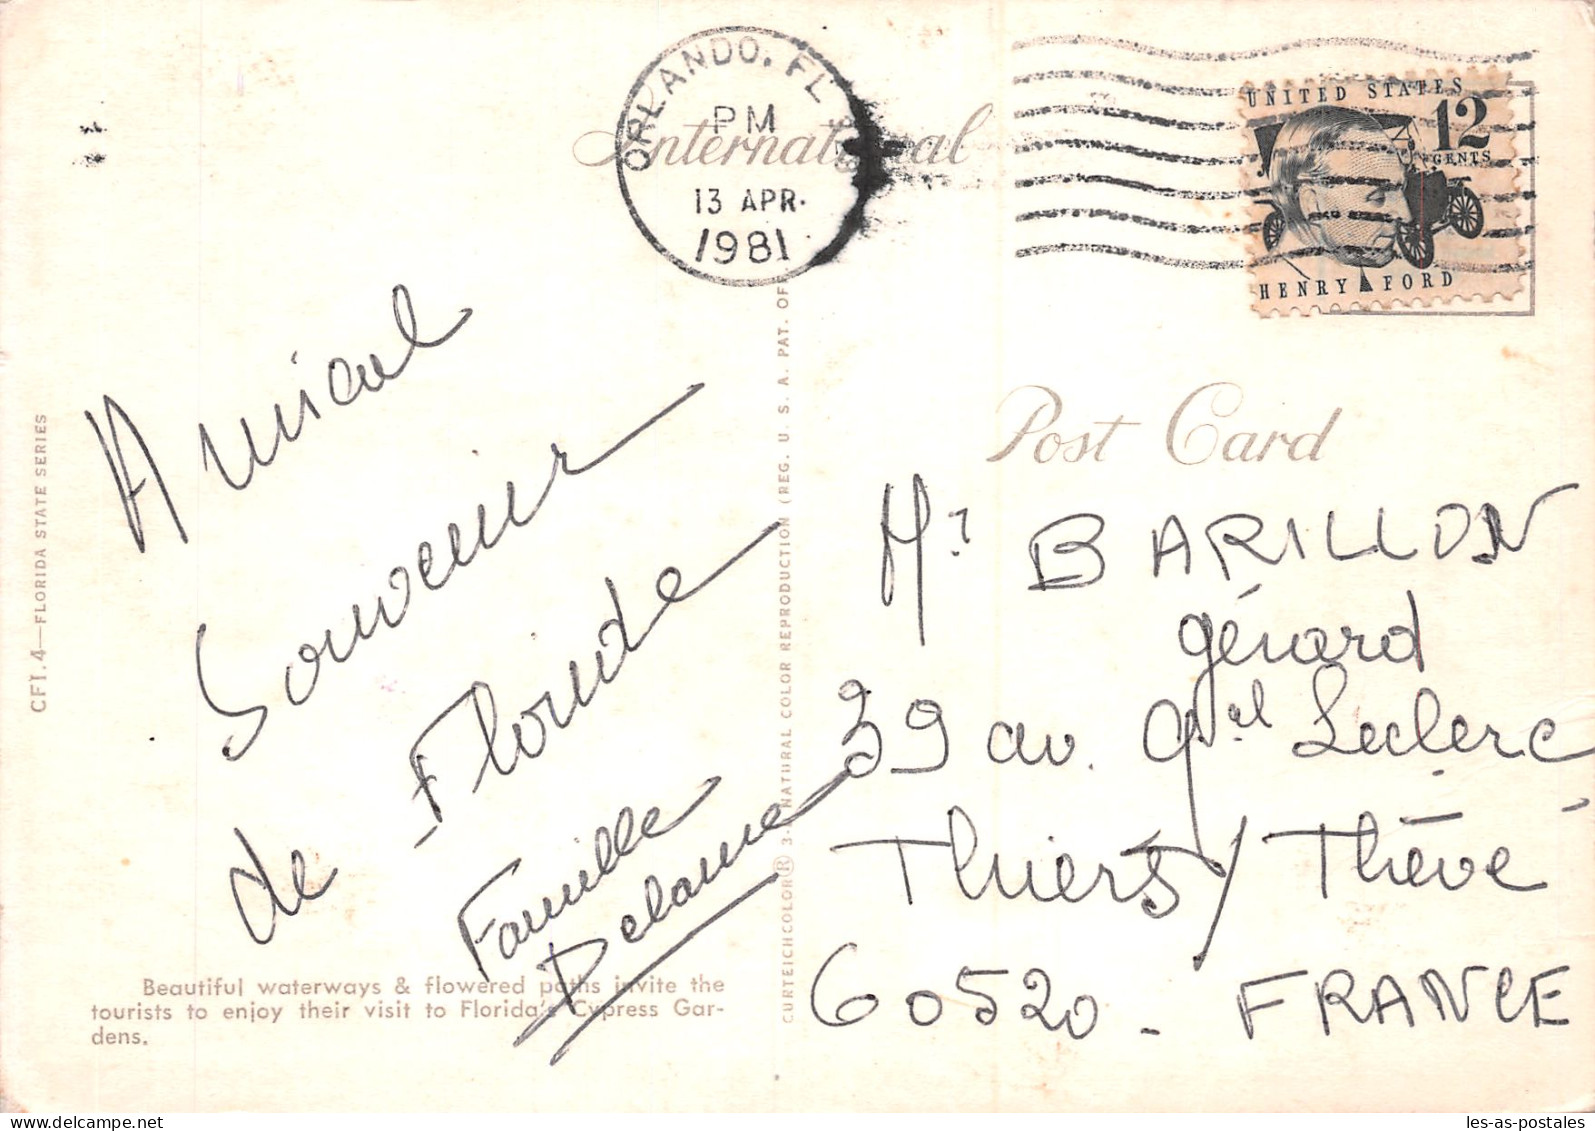 ORLANDO, FL
PM
13 APR.
1981
International
UNITED STATES
12
CENTS
HENRY FORD
Post Card
CFI.4—FLORIDA STATE SERIES
Amical
Souvenir
de Floride
Famille
Delame
Beautiful waterways & flowered paths invite the
tourists to enjoy their visit to Florida's Cypress Gar-
dens.
CURTEICHCOLOR® 3-D NATURAL COLOR REPRODUCTION (REG. U. S. A. PAT. OF
Mr BARILLON
gérard
39 av. Gal Leclerc
Thiers/ Thève
60520 - FRANCE
les-as-postales